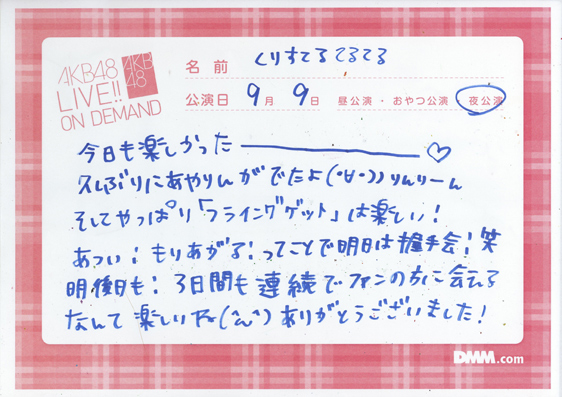 AKB48
LIVE!!
ON DEMAND
AKB
48
名前 くりすてるてるてる
公演日 9月 9日 昼公演・おやつ公演・夜公演
今日も楽しかった―――♡
久しぶりにあやりんがでたよ(・∀・))りんりーん
そしてやっぱり「フライングゲット」は楽しい!
あつい!もりあがる!ってことで明日は握手会!笑
明後日も!3日間も連続でファンの方に会える
なんて楽しいな(^ん^)ありがとうございました!
DMM.com